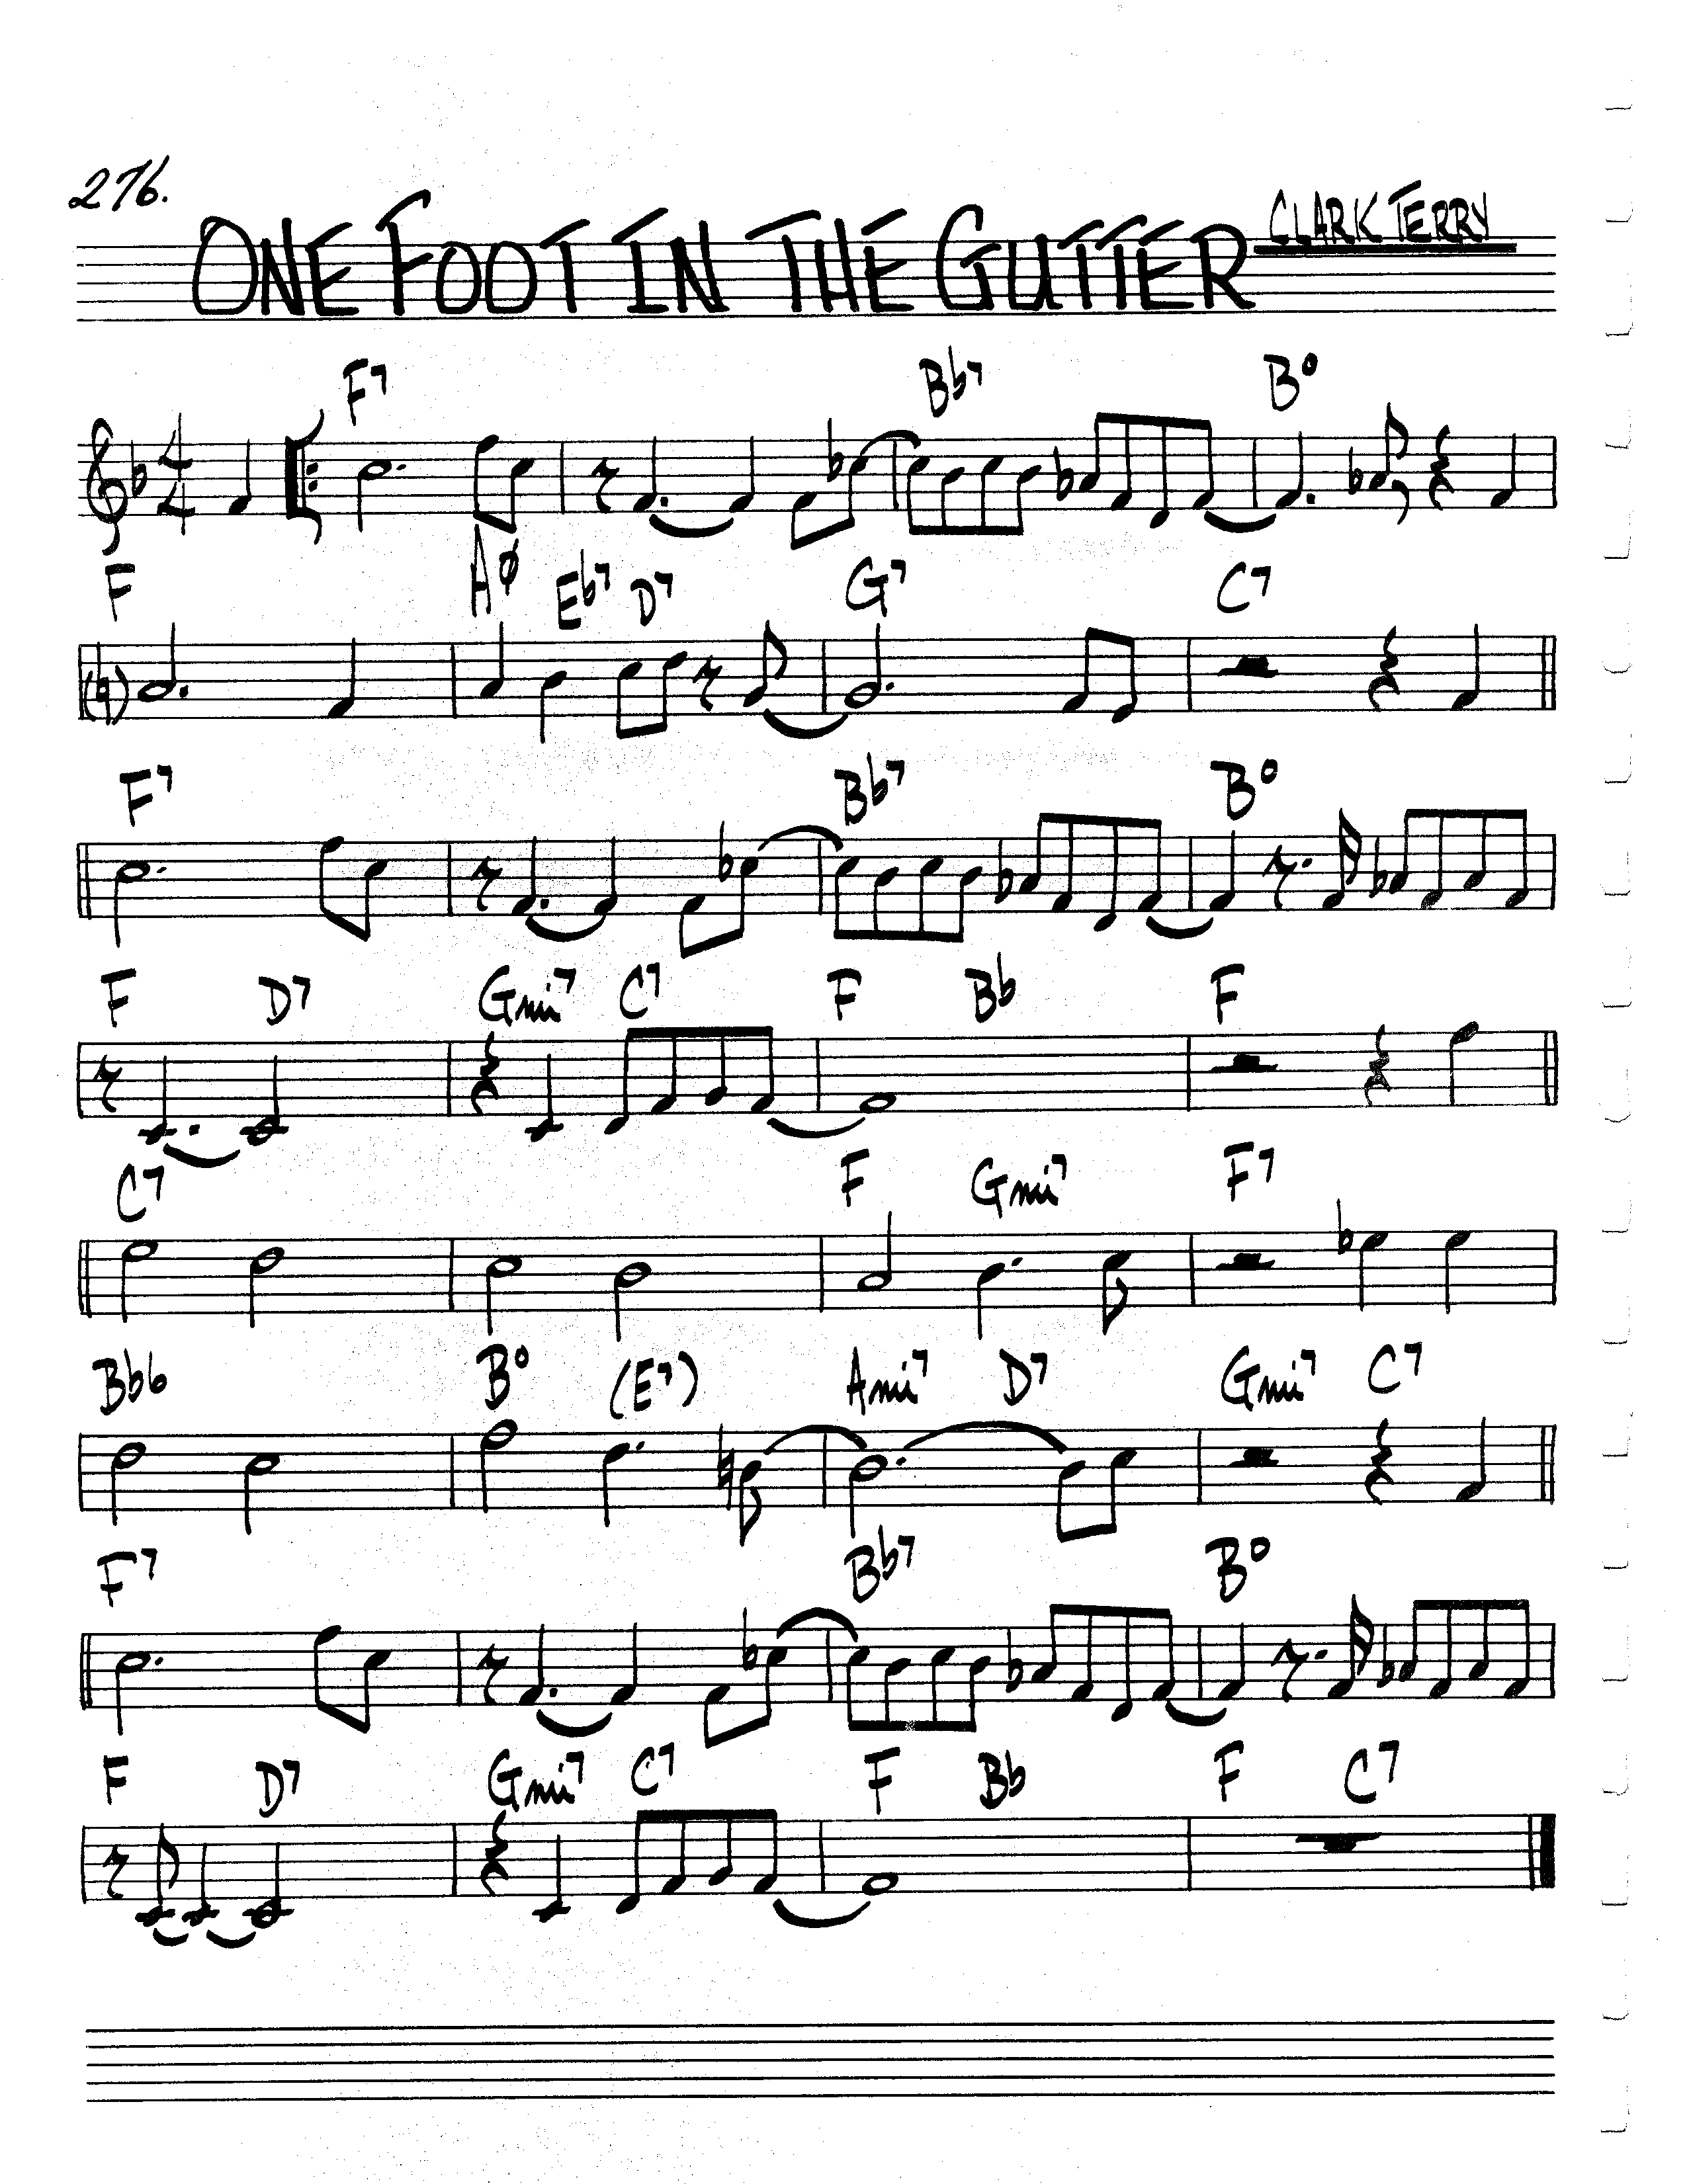 276.
ONE FOOT IN THE GUTTER
CLARK TERRY
F7 Bb7 Bo
4/4
F Aø Eb7 D7 G7 C7
F7 Bb7 Bo
F D7 Gmi7 C7 F Bb F
C7 F Gmi7 F7
Bb6 Bo (E7) Ami7 D7 Gmi7 C7
F7 Bb7 Bo
F D7 Gmi7 C7 F Bb F C7